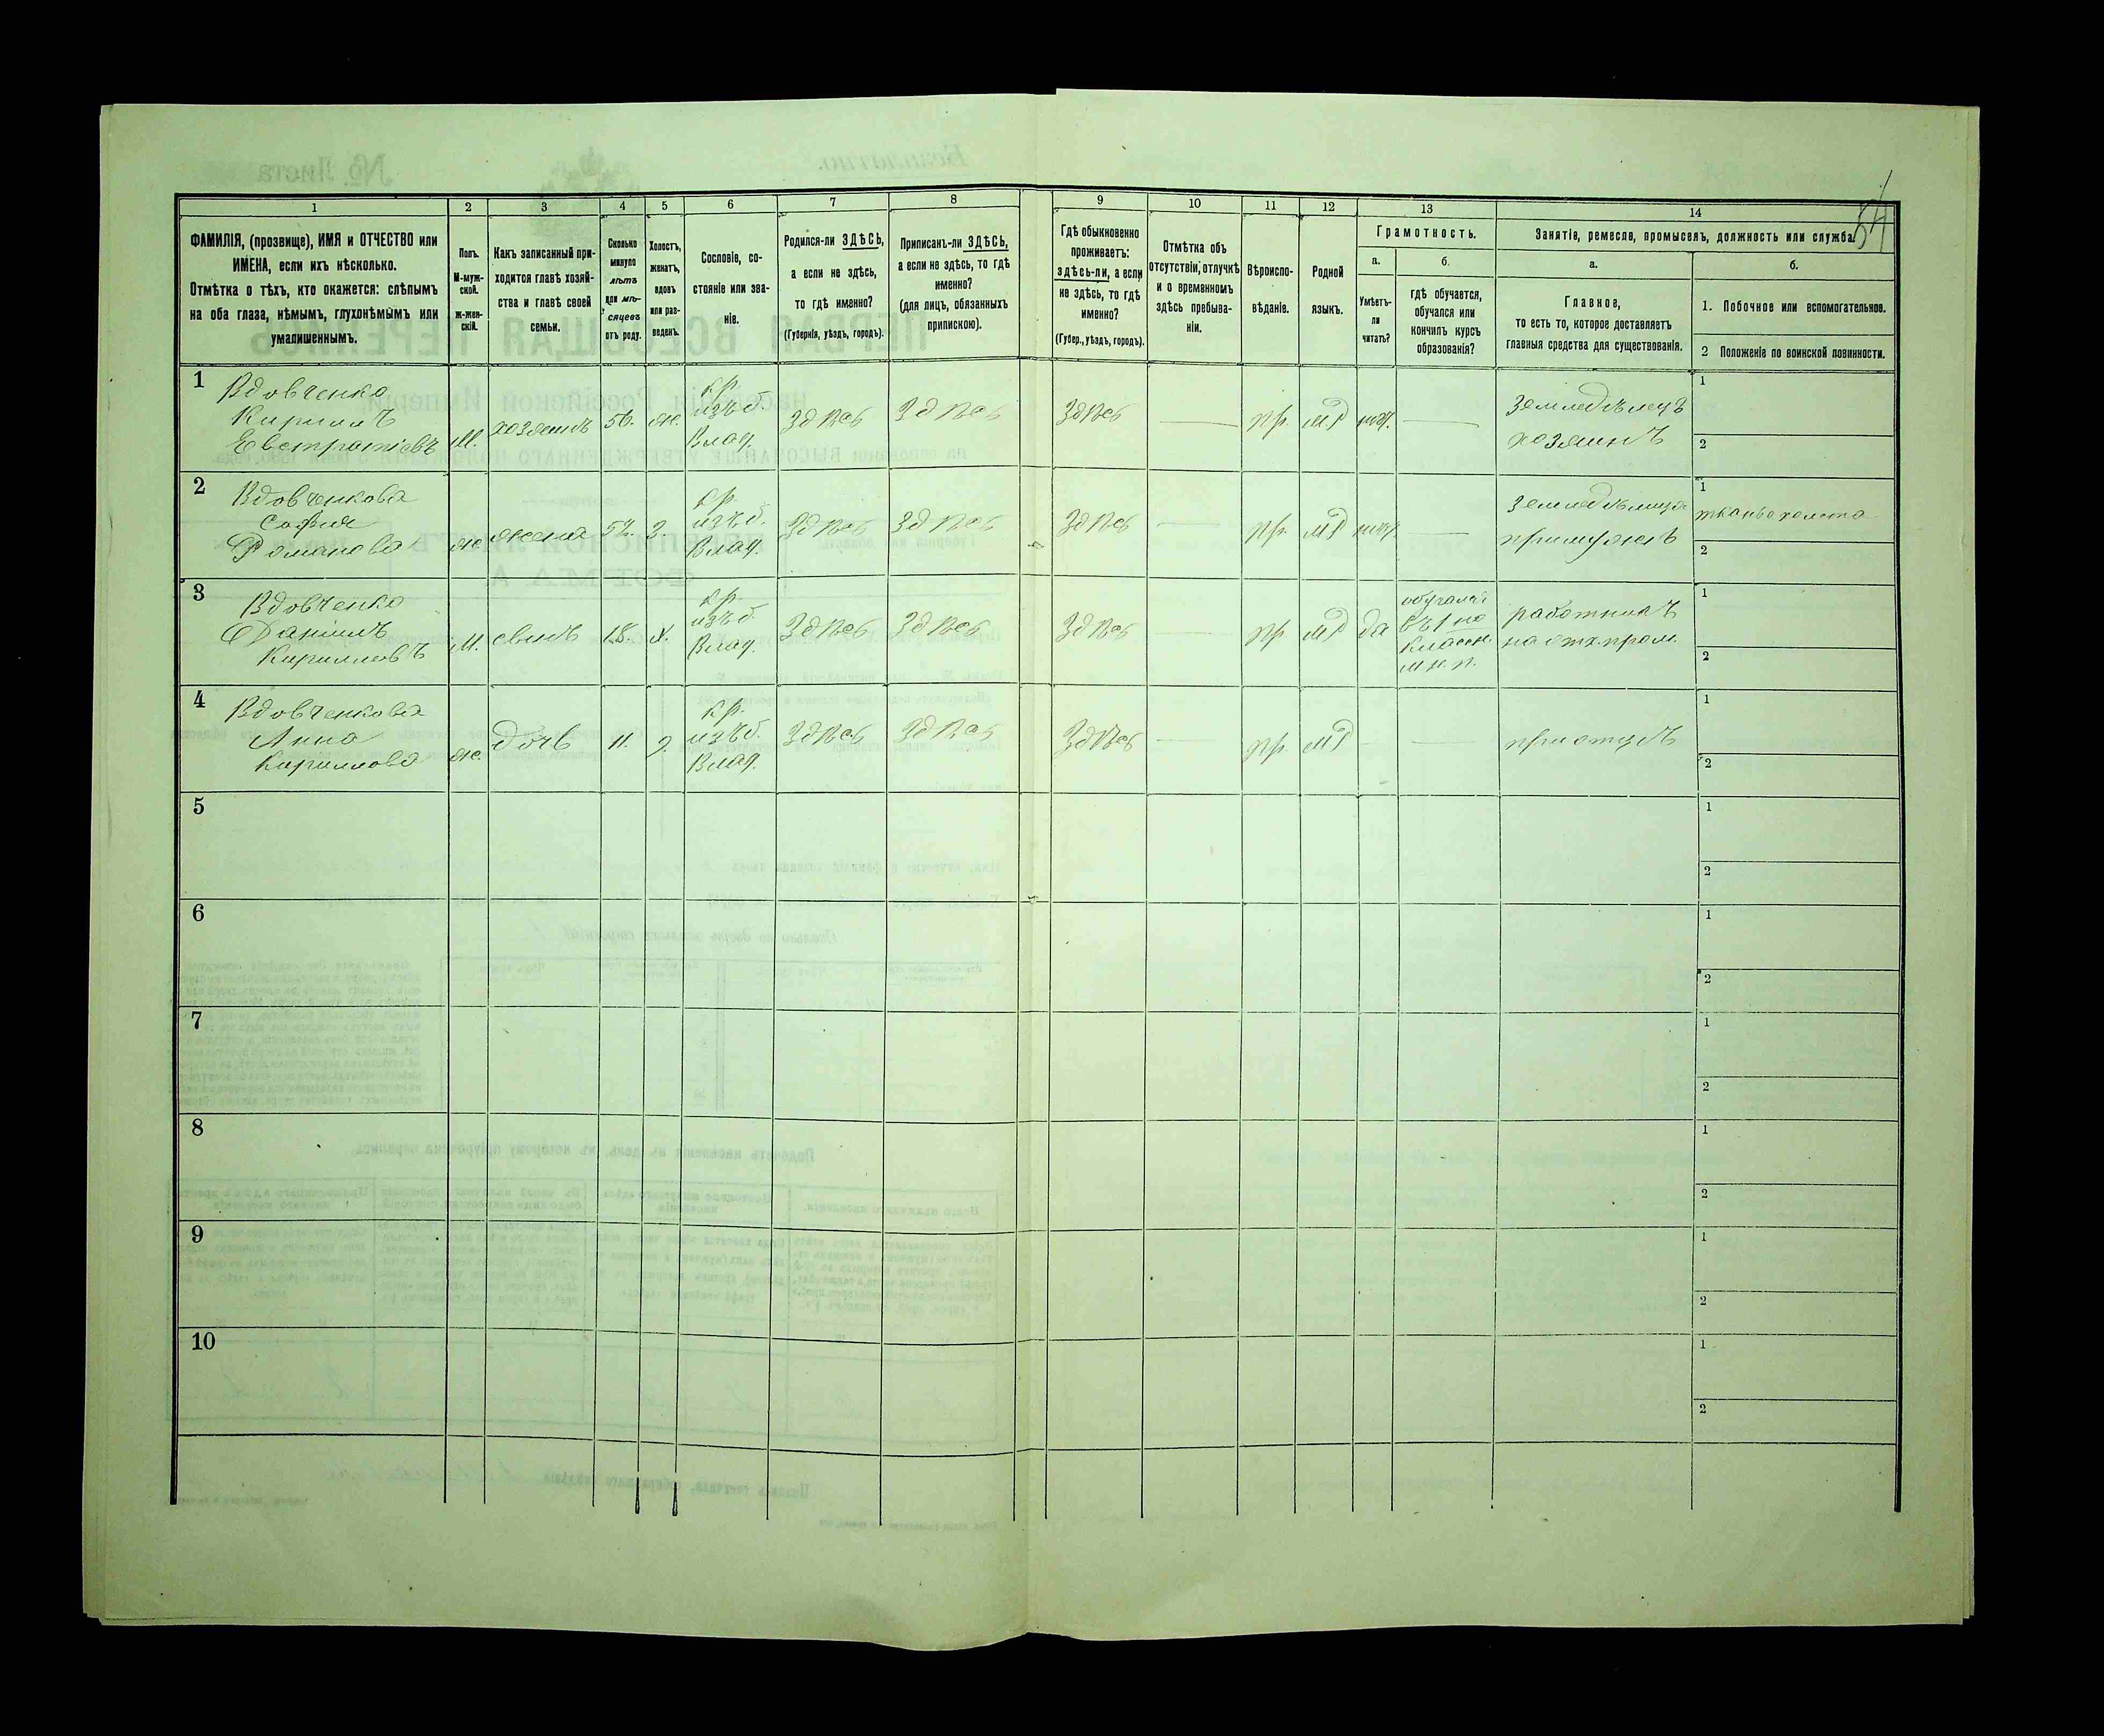 54
1
2
3
4
5
6
7
8
9
10
11
12
13
14
ФАМИЛІЯ, (прозвище), ИМЯ и ОТЧЕСТВО или
ИМЕНА, если ихъ нѣсколько.
Отмѣтка о тѣхъ, кто окажется: слѣпымъ
на оба глаза, нѣмымъ, глухонѣмымъ или
умалишеннымъ.
Полъ.
М-муж-
ской.
ж-жен-
скій.
Какъ записанный при-
ходится главѣ хозяй-
ства и главѣ своей
семьи.
Сколько
минуло
лѣтъ
или мѣ-
сяцевъ
отъ роду.
Холостъ,
женатъ,
вдовъ
или раз-
веденъ.
Сословіе, со-
стояніе или зва-
ніе.
Родился-ли ЗДѢСЬ,
а если не здѣсь,
то гдѣ именно?
(Губернія, уѣздъ, городъ).
Приписанъ-ли ЗДѢСЬ,
а если не здѣсь, то гдѣ
именно?
(для лицъ, обязанныхъ
припискою).
Гдѣ обыкновенно
проживаетъ:
здѣсь-ли, а если
не здѣсь, то гдѣ
именно?
(Губер., уѣздъ, городъ).
Отмѣтка объ
отсутствіи, отлучкѣ
и о временномъ
здѣсь пребыва-
ніи.
Вѣроиспо-
вѣданіе.
Родной
языкъ.
Грамотность.
а.
Умѣетъ-
ли
читать?
б.
гдѣ обучается,
обучался или
кончилъ курсъ
образованія?
Занятіе, ремесло, промыселъ, должность или служба.
а.
Главное,
то есть то, которое доставляетъ
главныя средства для существованія.
б.
1. Побочное или вспомогательное.
2 Положеніе по воинской повинности.
1
Вдовченко
Кириллъ
Евстратіевъ
м.
хозяинъ
56.
ж.
кр.
изъ б.
Влад.
Здѣсь
Здѣсь
Здѣсь
пр.
МР
нѣт.
Земледѣлецъ
хозяинъ
1
2
2
Вдовченкова
Софія
Романова
ж
жена
52.
З.
кр.
изъ б.
Влад.
Здѣсь
Здѣсь
Здѣсь
пр.
МР
нѣт.
Земледѣлица
примужѣ
1
тканье холста
2
3
Вдовченко
Даніилъ
Кирилловъ
м.
сынъ
18.
х.
кр.
изъ б.
Влад.
Здѣсь
Здѣсь
Здѣсь
пр
МР
да
въ 1 но
классн.
м. н. п.
работникъ
на отх. пром.
1
2
4
Вдовченкова
Анна
Кириллова
ж.
дочь
11.
кр.
изъ б.
Влад.
Здѣсь
Здѣсь
Здѣсь
пр.
МР
при отцѣ
1
2
5
1
2
6
1
2
7
1
2
8
1
2
9
1
2
10
1
2